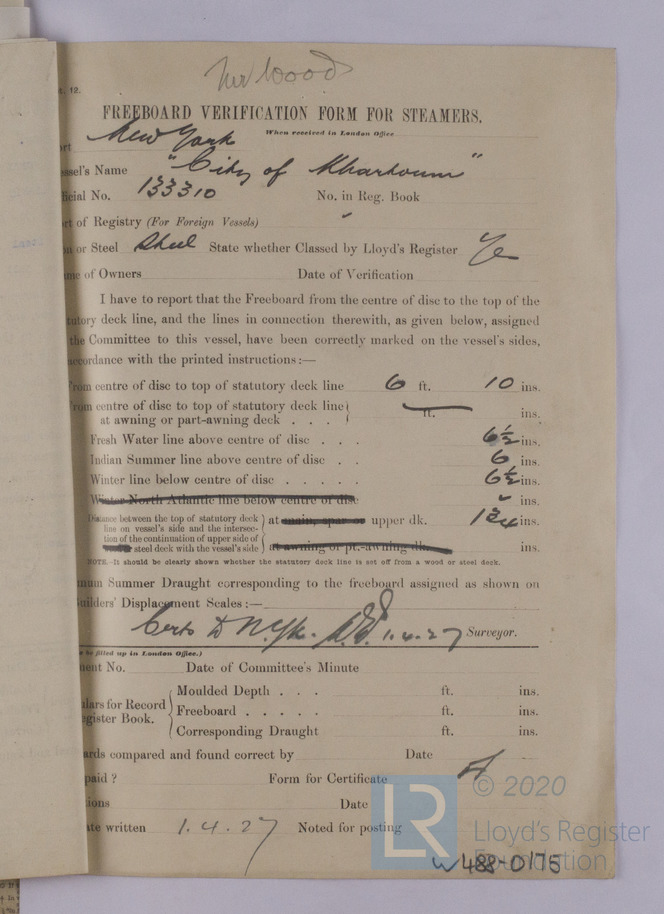 Mr Wood
. 12.
FREEBOARD VERIFICATION FORM FOR STEAMERS.
When received in London Office
rt New York
ssel's Name "City of Khartoum"
ficial No. 133310 No. in Reg. Book
rt of Registry (For Foreign Vessels)
n or Steel Steel State whether Classed by Lloyd's Register Yes
me of Owners Date of Verification
I have to report that the Freeboard from the centre of disc to the top of the
tutory deck line, and the lines in connection therewith, as given below, assigned
the Committee to this vessel, have been correctly marked on the vessel's sides,
accordance with the printed instructions:—
From centre of disc to top of statutory deck line 6 ft. 10 ins.
From centre of disc to top of statutory deck line
at awning or part-awning deck . . . ft. ins.
Fresh Water line above centre of disc . . . 6½ ins.
Indian Summer line above centre of disc . . 6 ins.
Winter line below centre of disc . . . . . 6½ ins.
Winter North Atlantic line below centre of disc ins.
Distance between the top of statutory deck
line on vessel's side and the intersec-
tion of the continuation of upper side of
steel deck with the vessel's side
at main, spar or upper dk. 1¾ ins.
at awning or pt.-awning dk. ins.
NOTE.-It should be clearly shown whether the statutory deck line is set off from a wood or steel deck.
mum Summer Draught corresponding to the freeboard assigned as shown on
uilders' Displacement Scales:—
Certs to N.Yk. 1.4.27 Surveyor.
o be filled up in London Office.)
ment No. Date of Committee's Minute
ulars for Record
egister Book.
Moulded Depth . . . ft. ins.
Freeboard . . . . . ft. ins.
Corresponding Draught ft. ins.
ards compared and found correct by Date
paid ? Form for Certificate
ions Date
ate written 1.4.27 Noted for posting
LR
© 2020
Lloyd's Register
Foundation
W488-0176